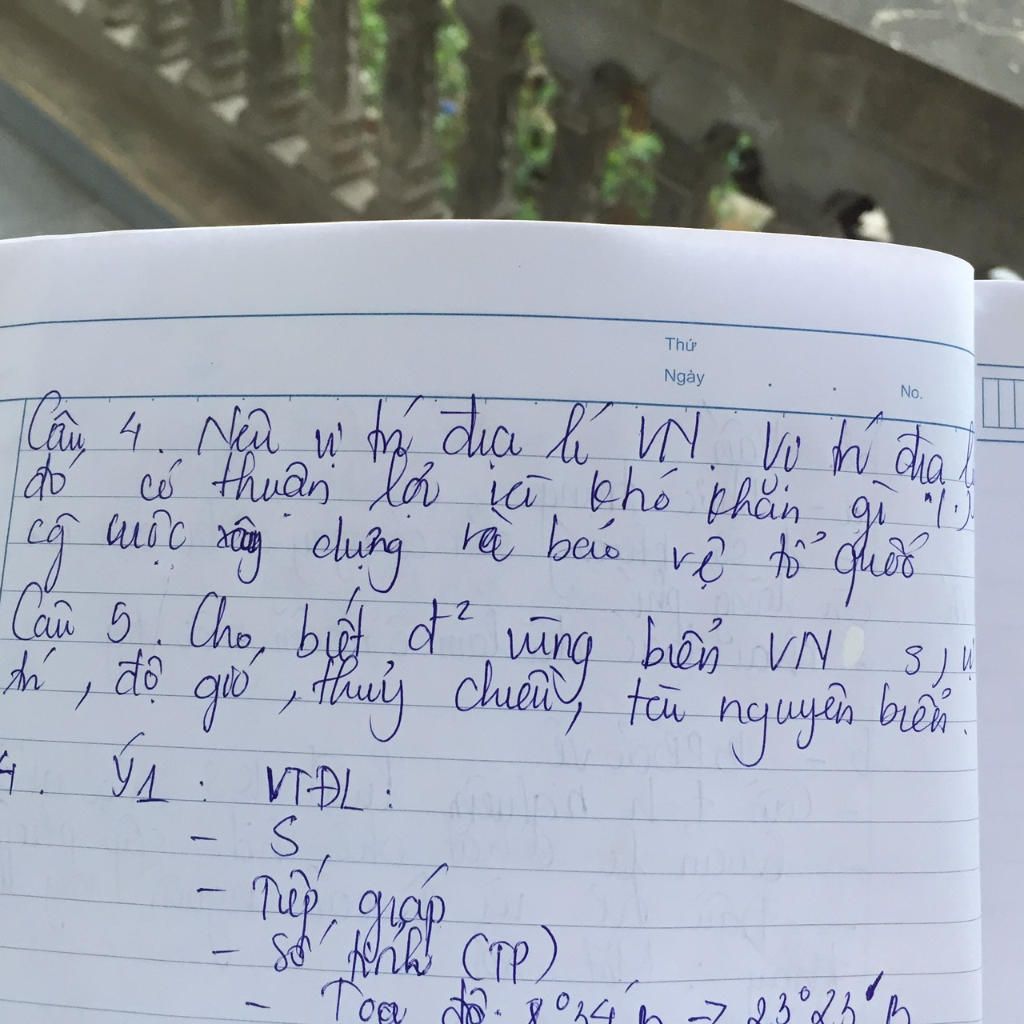 Thứ
Ngày . . No.
Câu 4. Nêu vị trí địa lí VN. Vị trí địa lí
đó có thuận lợi và khó khăn gì
cg cuộc xây dựng và bảo vệ tổ quốc
Câu 5. Cho biết đ² vùng biển VN S, vị
trí, độ gió, thuỷ chiều, tài nguyên biển.
4. Ý1 : VTĐL :
- S
- Tiếp giáp
- Số tỉnh (TP)
- Toạ độ: 8°34' B → 23°23' B